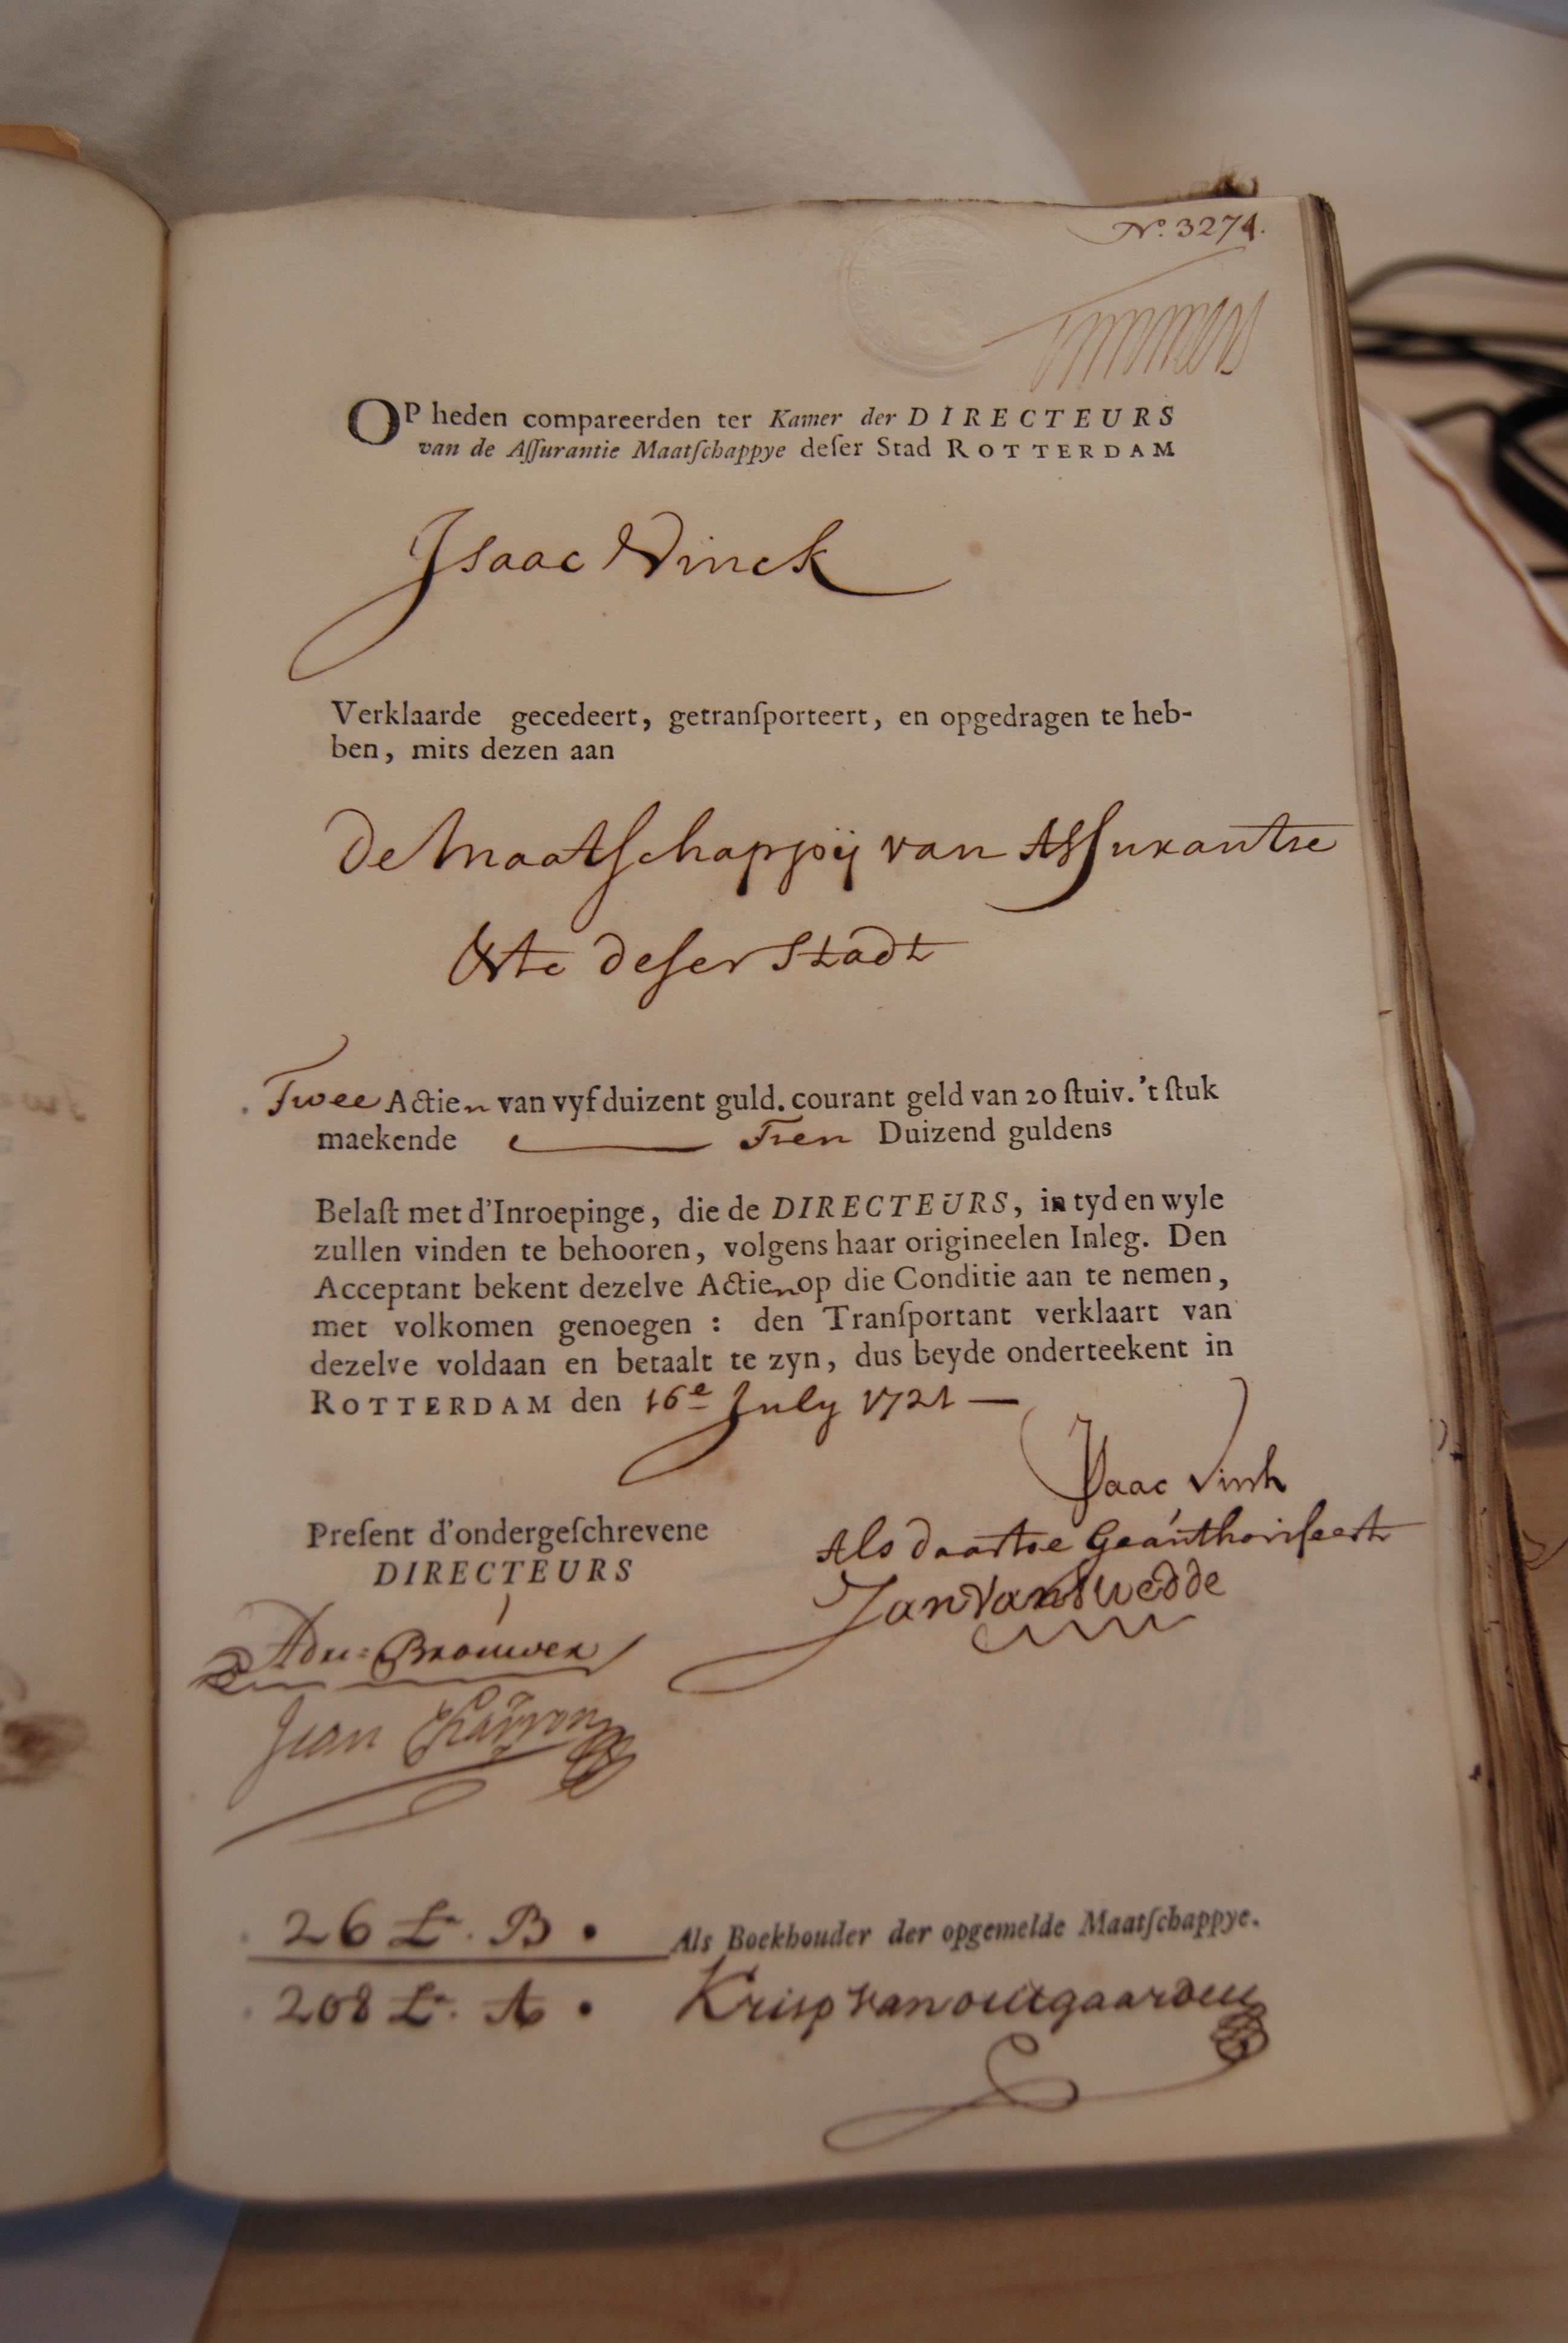 No. 3271.
OP heden compareerden ter Kamer der DIRECTEURS
van de Aſſurantie Maatſchappye deſer Stad ROTTERDAM
Isaac Vinck
Verklaarde gecedeert, getranſporteert, en opgedragen te heb-
ben, mits dezen aan
De Maatſchappij van Aſſurantie
&te deſer Stadt
Twee Actien van vyf duizent guld. courant geld van 20 ſtuiv. 't ſtuk
maekende Tien Duizend guldens
Belaſt met d'Inroepinge, die de DIRECTEURS, in tyd en wyle
zullen vinden te behooren, volgens haar origineelen Inleg. Den
Acceptant bekent dezelve Actien op die Conditie aan te nemen,
met volkomen genoegen : den Tranſportant verklaart van
dezelve voldaan en betaalt te zyn, dus beyde onderteekent in
ROTTERDAM den 16e July 1721 —
Isaac Vink
Als daartoe Geauthoriseert
Jan van Swedde
Preſent d'ondergeſchrevene
DIRECTEURS
Adr= Brouwer
Jean
26 Lr. B .
Als Boekhouder der opgemelde Maatſchappye.
208 Lr. A .
Krisp van outgaarden